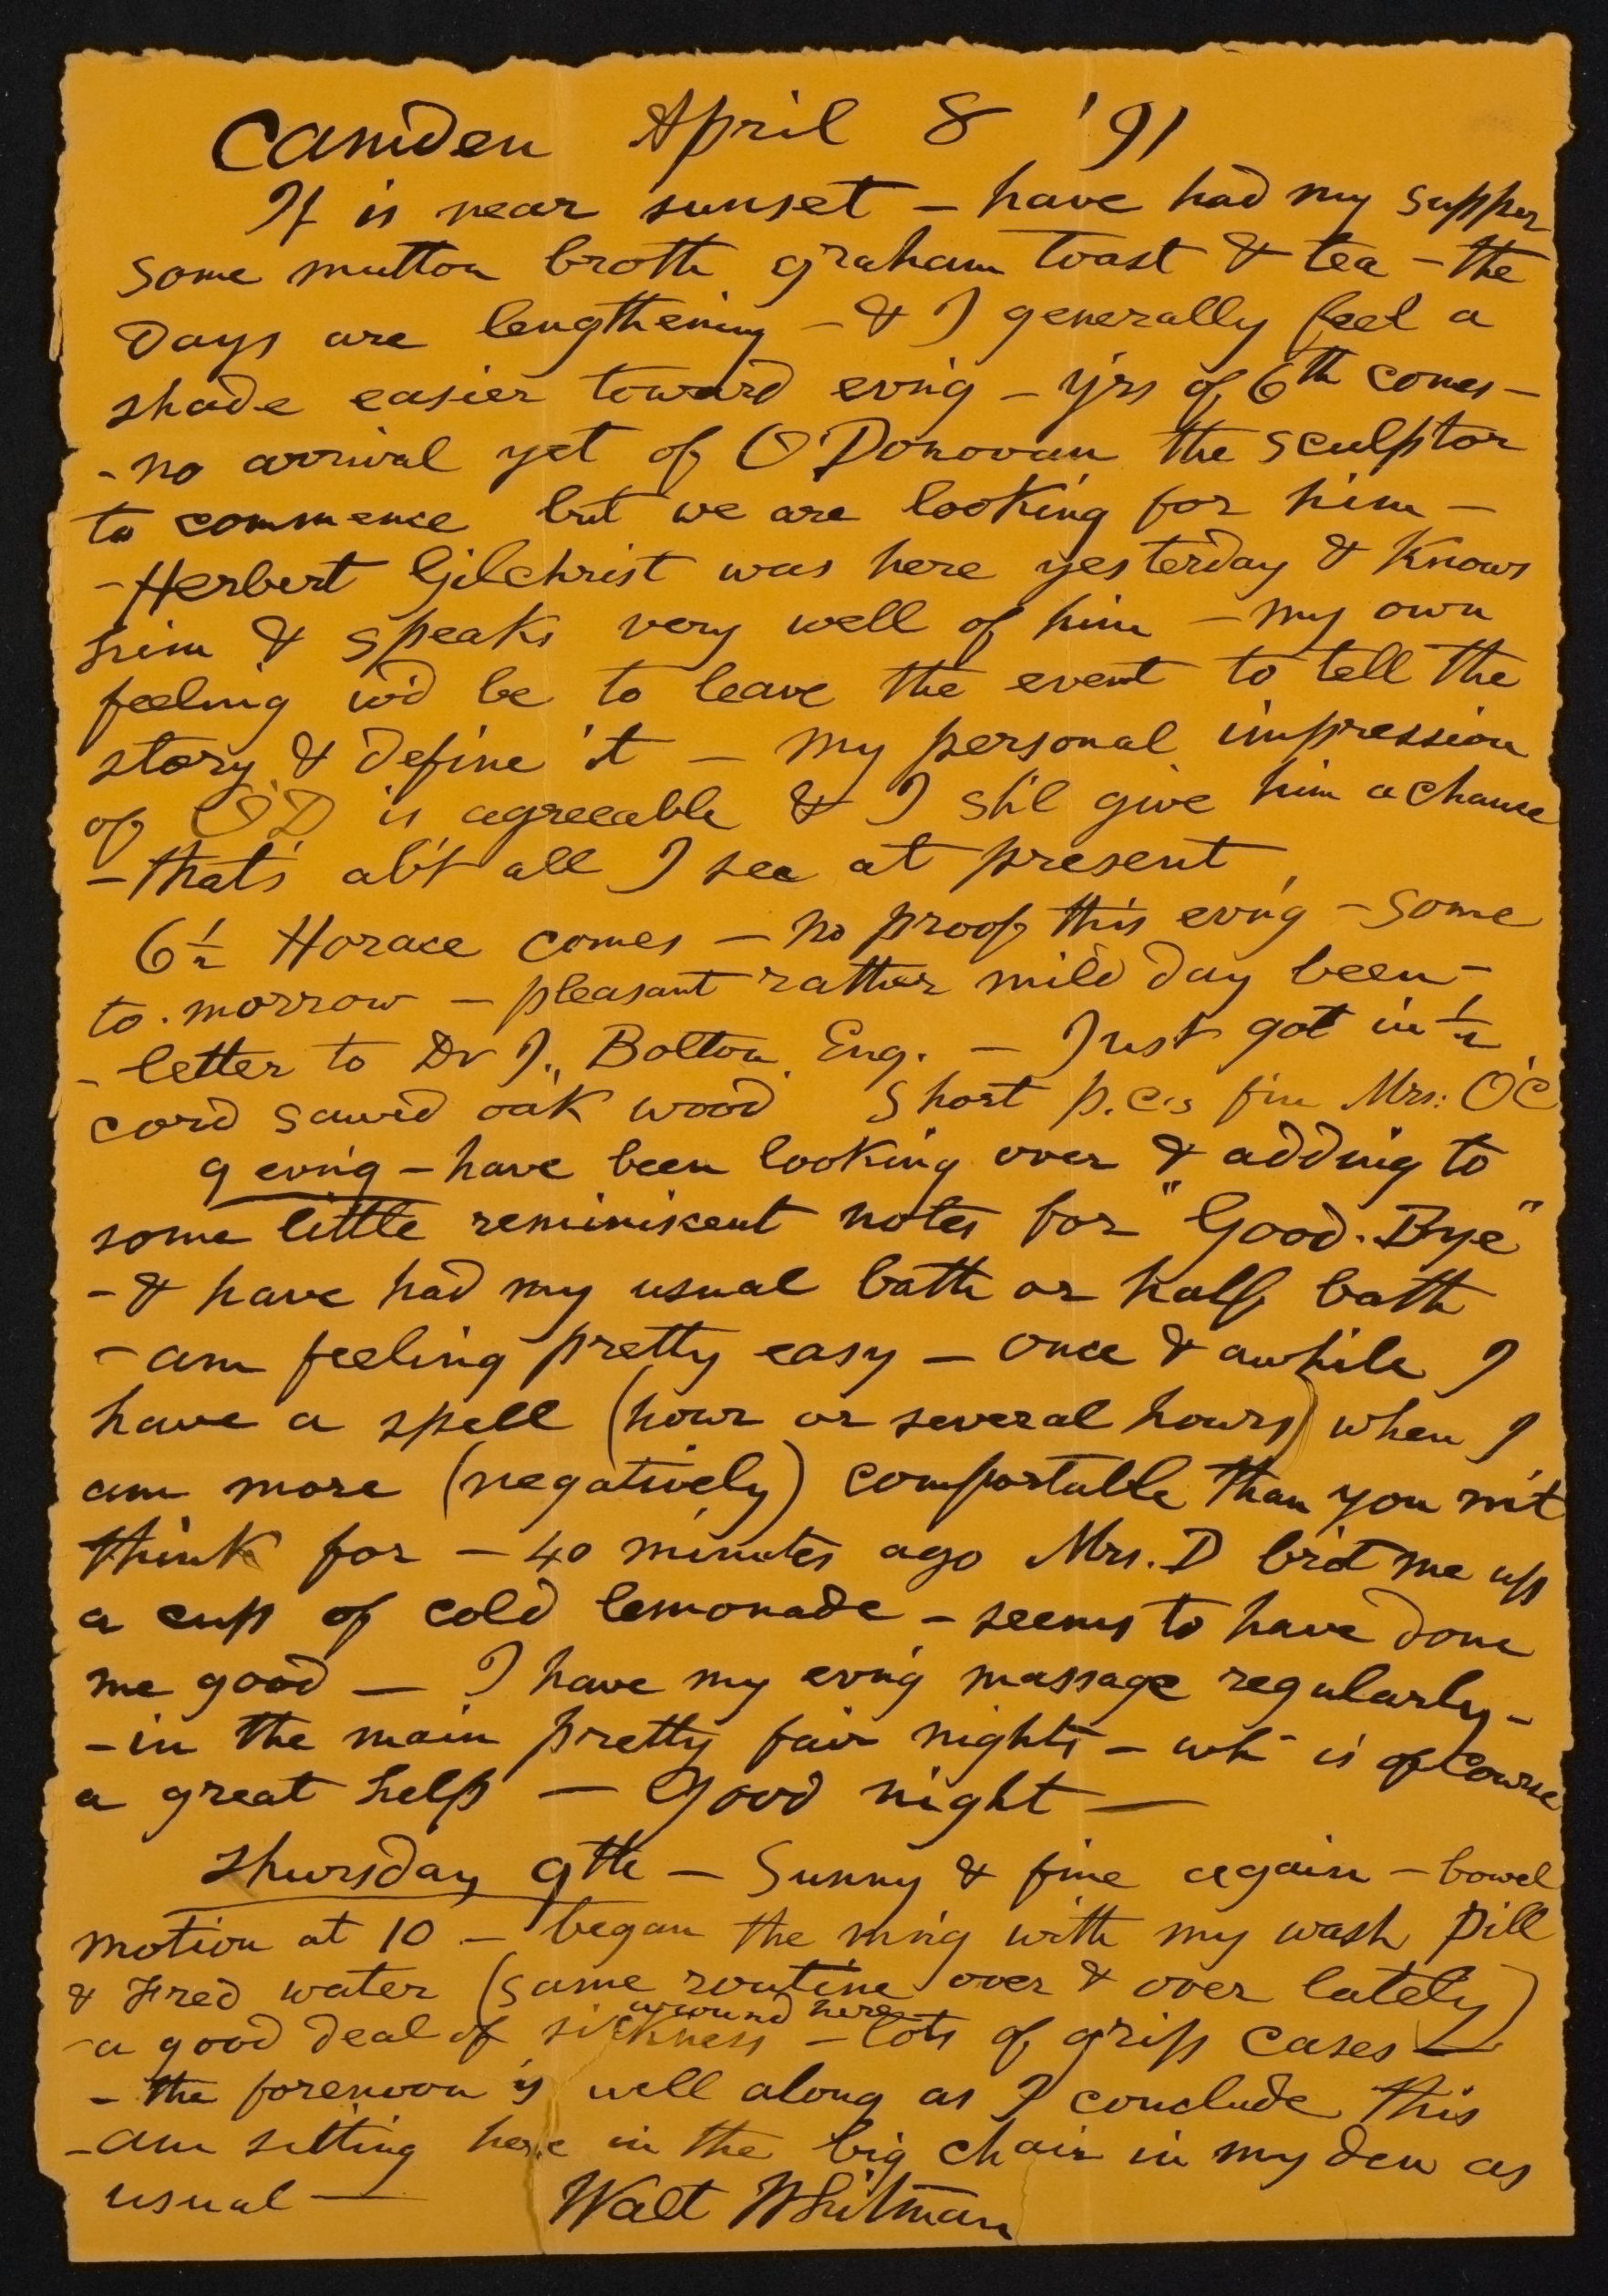 Camden April 8 '91
It is near sunset – have had my supper
some mutton broth graham toast & tea – the
days are lengthening – & I generally feel a
shade easier toward ev'ng – y'rs of 6th comes –
– no arrival yet of O'Donovan the sculptor
to commence but we are looking for him –
– Herbert Gilchrist was here yesterday & knows
him & speaks very well of him – my own
feeling w'd be to leave the event to tell the
story & define it – my personal impression
of O'D is agreeable & I sh'l give him a chance
– that's ab't all I see at present
6½ Horace comes – no proof this ev'ng – some
to-morrow – pleasant rather mild day been –
– letter to Dr J., Bolton Eng. – Just got in ½
cord sawed oak wood Short p.c. f'm Mrs: O'C
9 ev'ng – have been looking over & adding to
some little reminiscent notes for "Good-Bye"
– & have had my usual bath or half bath
– am feeling pretty easy – once & awhile I
have a spell (hour or several hours) when I
am more (negatively) comfortable than you mi't
think for – 40 minutes ago Mrs. D bro't me up
a cup of cold lemonade – seems to have done
me good – I have my ev'ng massage regularly –
– in the main pretty fair nights – wh' is of course
a great help – Good night –
Thursday 9th – Sunny & fine again – bowel
motion at 10 – began the m'ng with my wash pill
& Fred water (same routine over & over lately)
– a good deal of sickness around here – lots of grip cases –
– the forenoon is well along as I conclude this
– am sitting here in the big chair in my den as
usual – Walt Whitman